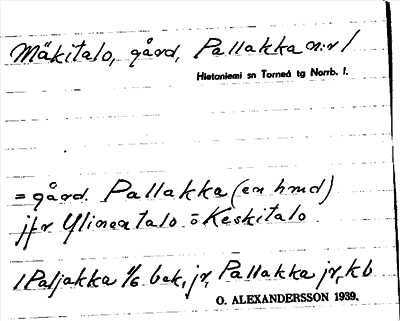 Mäkitalo, gård, Pallakka n:r 1
Hietaniemi sn Torneå tg Norrb. l.
= gård. Pallakka (en hmd)
jfr Ylinentalo o Keskitalo.
1 Paljakka 1/6 bek, jr, Pallakka jr, kb
O. ALEXANDERSSON 1939.